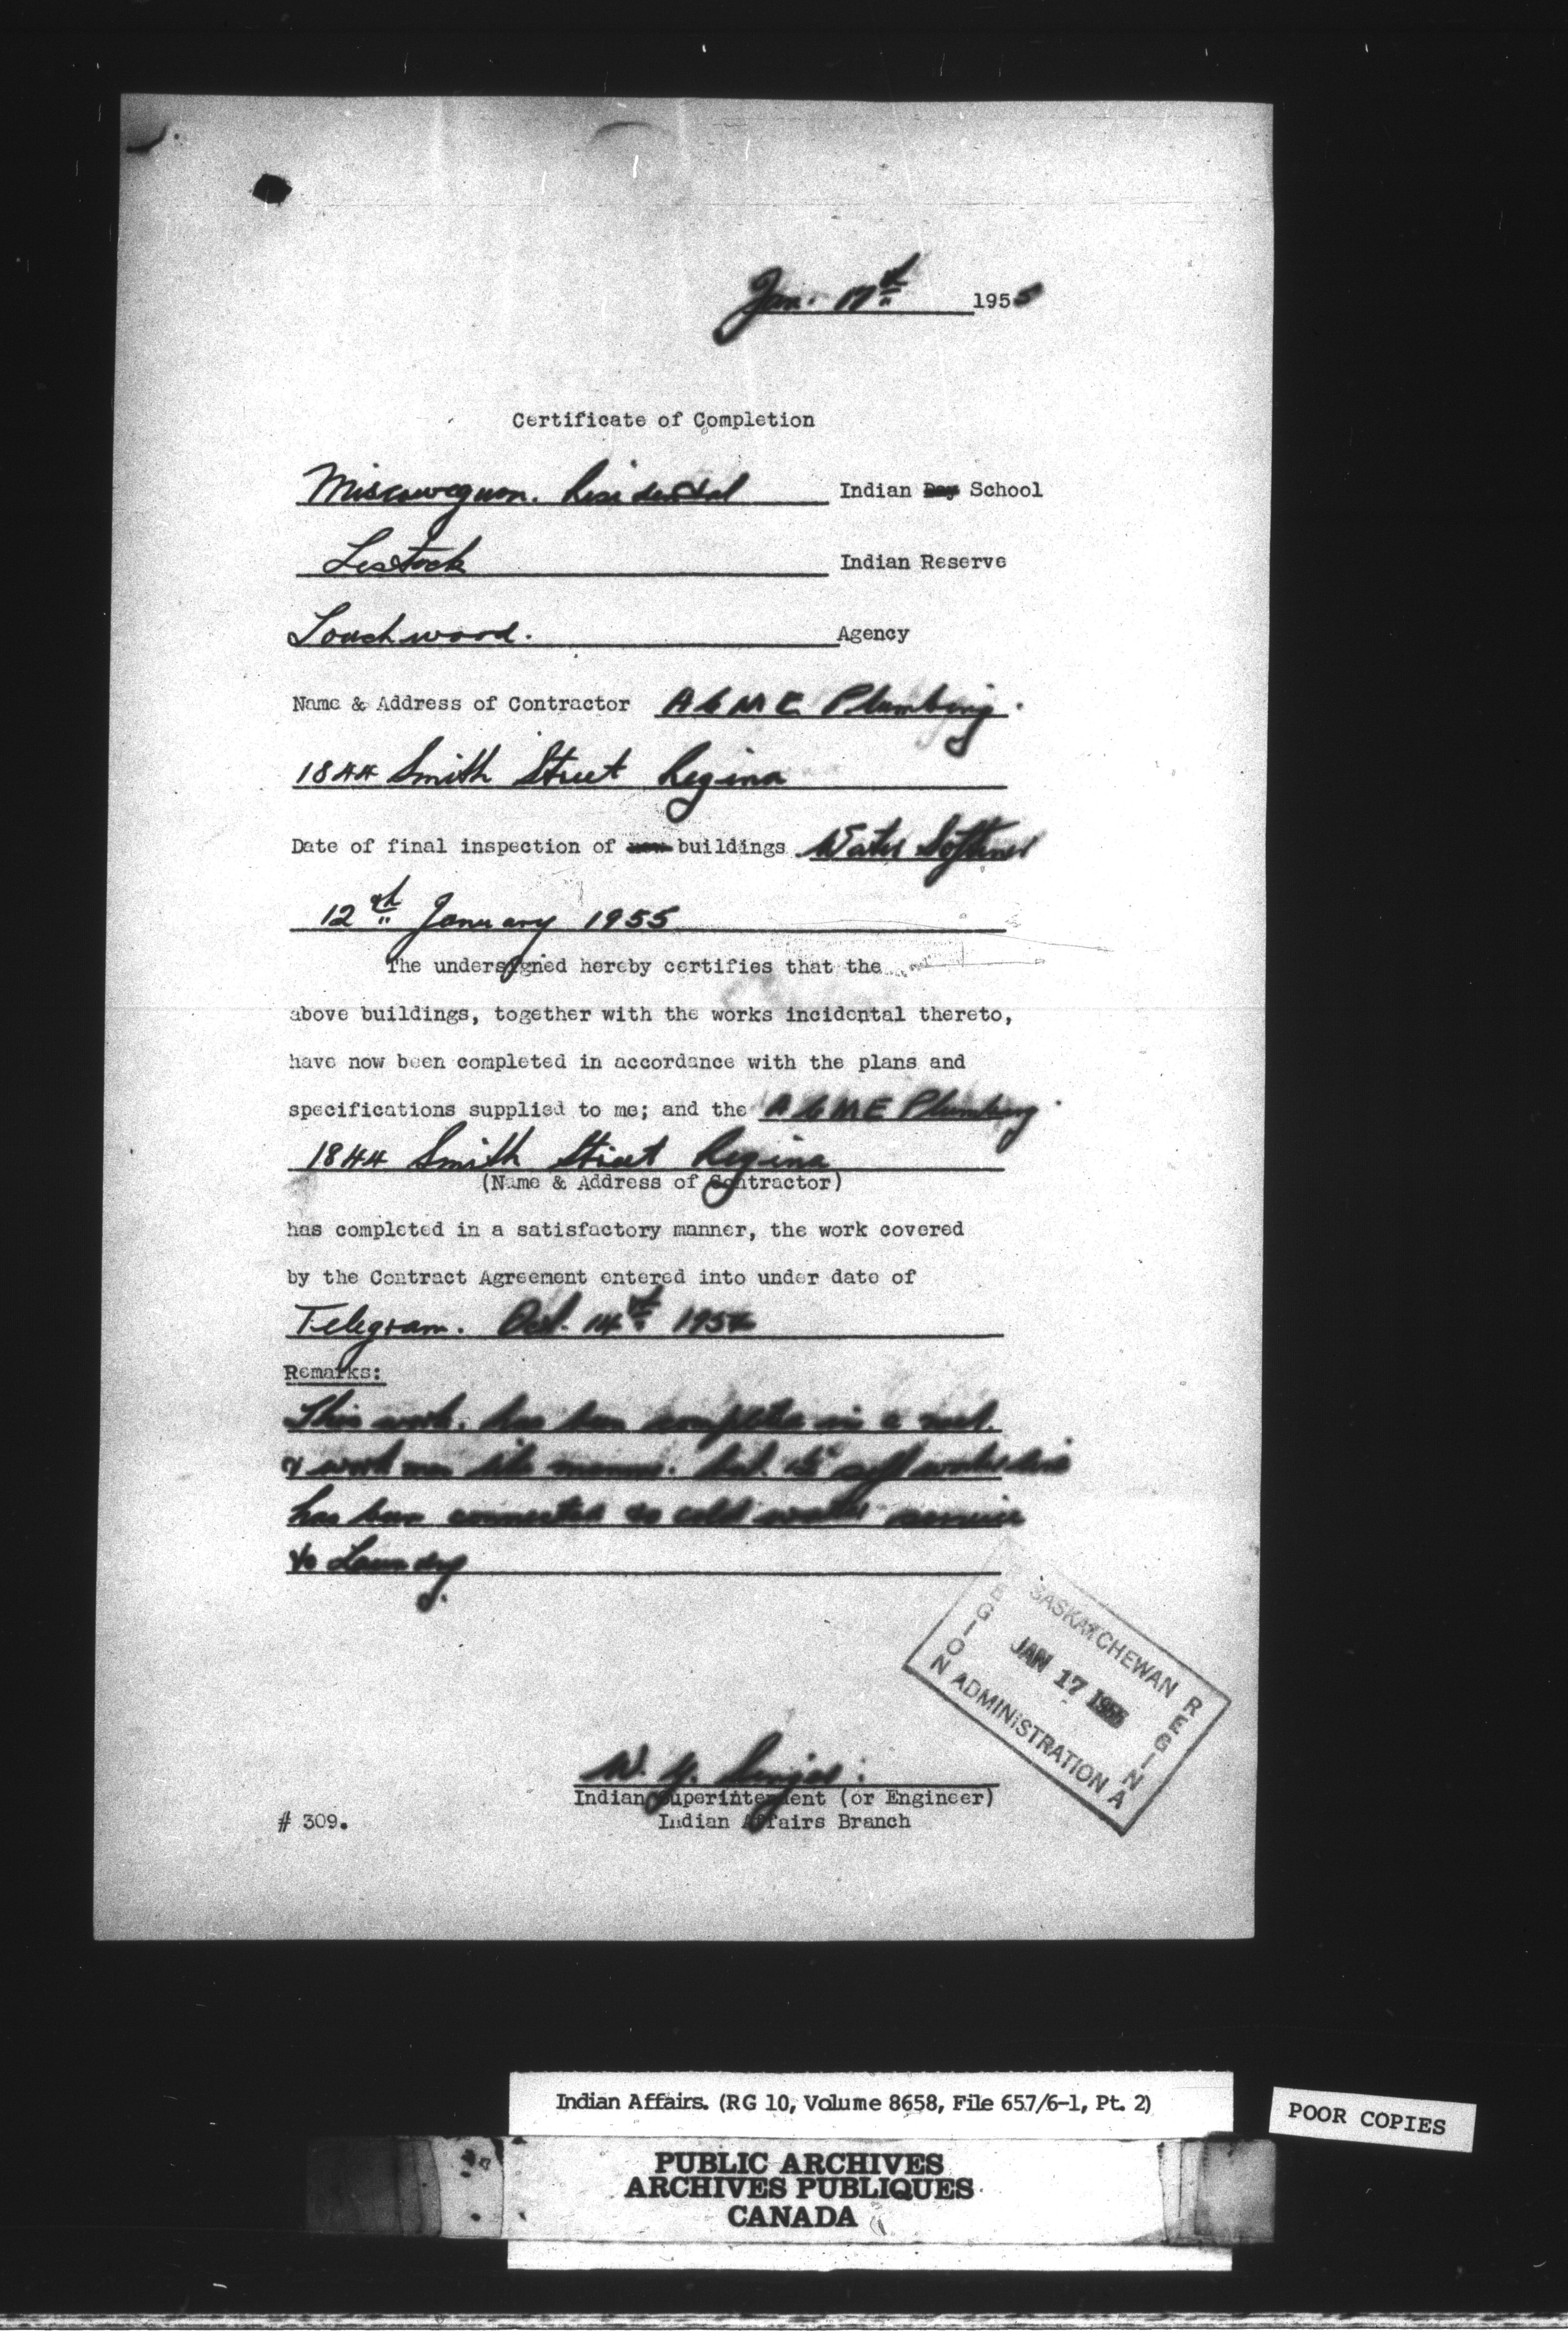 Jan. 17th 1955
Certificate of Completion
Miscowequon. Residential Indian Day School
Lestock Indian Reserve
Touchwood. Agency
Name & Address of Contractor ACME Plumbing.
1844 Smith Street Regina
Date of final inspection of new buildings Water Softner
12th January 1955
The undersigned hereby certifies that the
above buildings, together with the works incidental thereto,
have now been completed in accordance with the plans and
specifications supplied to me; and the ACME Plumbing.
1844 Smith Street Regina
(Name & Address of Contractor)
has completed in a satisfactory manner, the work covered
by the Contract Agreement entered into under date of
Telegram. Oct. 14th 1954
Remarks:
This work. has been complete in a neat.
& work man like manner. but. soft water line
has been connected to cold water service
to Laundry.
SASKATCHEWAN
REGION
JAN 17 1955
REGINA
ADMINISTRATION
W.
Indian Superintendent (or Engineer)
# 309. Indian Affairs Branch
Indian Affairs. (RG 10, Volume 8658, File 657/6-1, Pt. 2)
POOR COPIES
PUBLIC ARCHIVES
ARCHIVES PUBLIQUES
CANADA